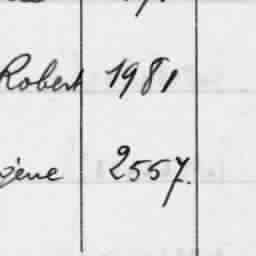 Robert 1981
gène 2557.